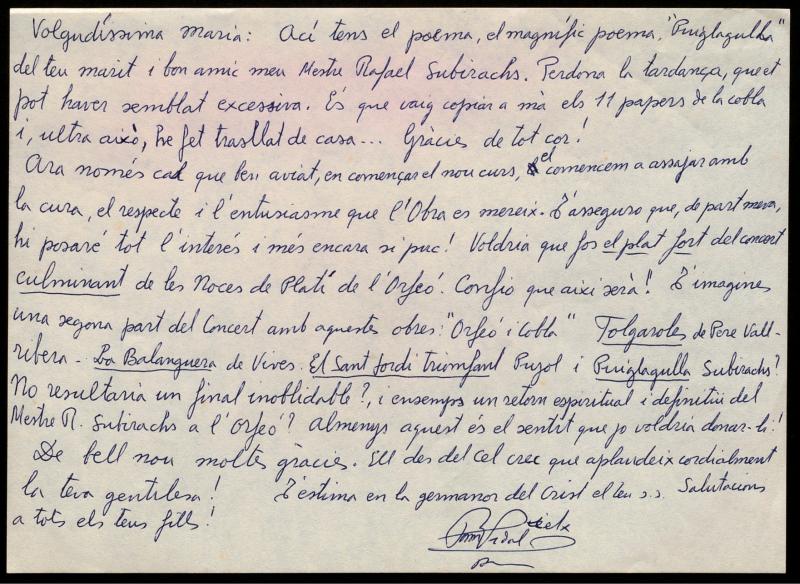 Volgudíssima Maria: Ací tens el poema, el magnífic poema, "Puiglagulla"
del teu marit i bon amic meu Mestre Rafael Subirachs. Perdona la tardança, que et
pot haver semblat excessiva. És que vaig copiar a mà els 11 papers de la cobla
i, ultra això, he fet trasllat de casa... Gràcies de tot cor!
Ara només cal que ben aviat, en començar el nou curs, el comencem a assajar amb
la cura, el respecte i l'entusiasme que l'Obra es mereix. T'asseguro que, de part meva,
hi posaré tot l'interés i més encara si puc! Voldria que fos el plat fort del concert
culminant de les Noces de Platí de l'Orfeó. Confio que així serà! T'imagines
una segona part del Concert amb aquestes obres: "Orfeó i Cobla" Tolgaroles de Pere Vall-
ribera - La Balanguera de Vives. El Sant Jordi triomfant Pujol i Puiglagulla Subirachs?
No resultaria un final inoblidable?, i ensems un retorn espiritual i definitiu del
Mestre R. Subirachs a l'Orfeó? Almenys aquest és el sentit que jo voldria donar-li!
De bell nou moltes gràcies. Ell des del cel crec que aplaudeix cordialment
la teva gentilesa! T'estima en la germanor del Crist el teu s.s. Salutacions
a tots els teus fills!